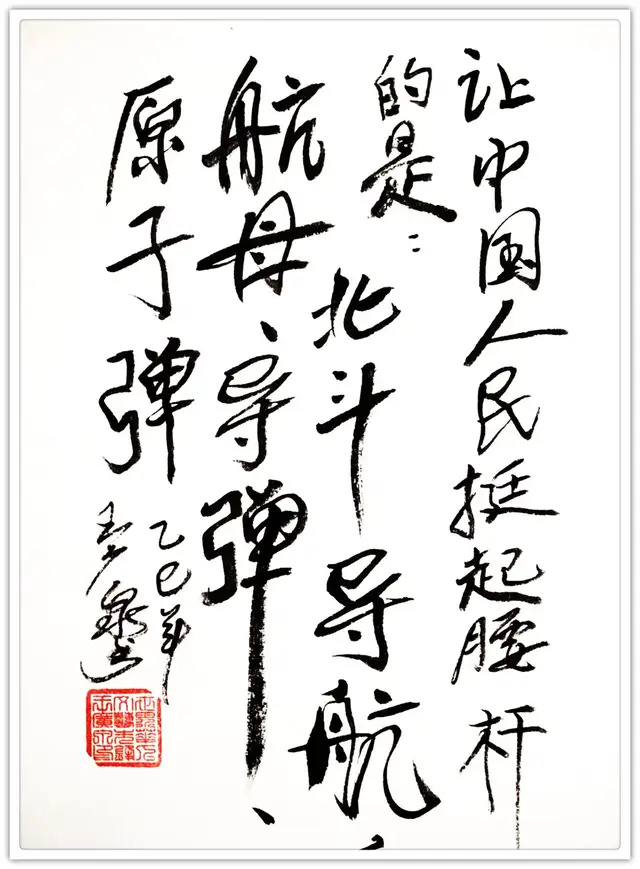 让中国人民挺起腰杆
的是：
北斗导航、
航母、导弹、
原子弹
乙巳年